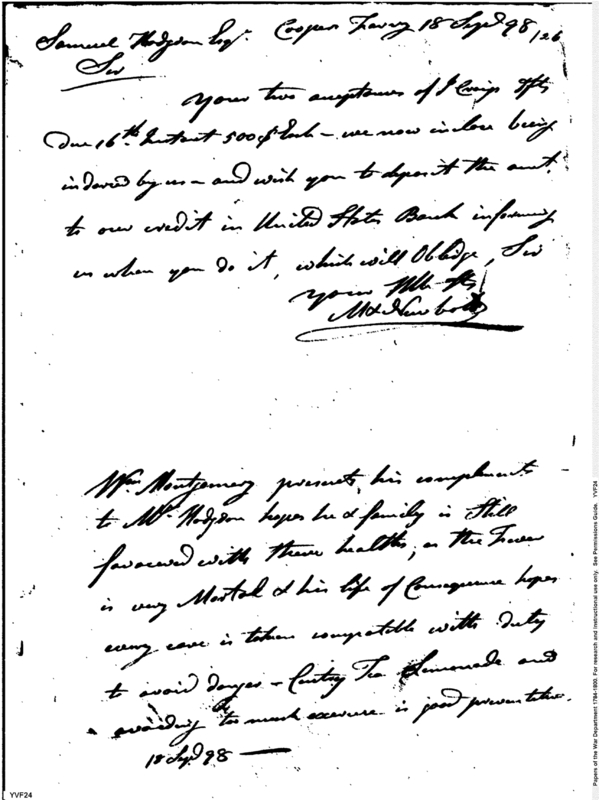 Samuel Hodgdon Esqr. Coopers Ferry 18 Sepr. 98 /126
Sir
Your two acceptances of J Craigs dfts
due 16th. Instant 500 $ Each – we now inclose being
indorced by us – and wish you to deposit the amt.
to our credit in United States Bank informing
us when you do it, which will Oblidge, Sir
your
M & J Newbold
Wm. Montgomery presents his compliments
to Mr. Hodgdon hopes he & family is Still
favoured with there healths, as the Fever
is very Mortal & his life of Consequence hopes
every care is taken compatible with duty
to avoid danger – Centry Tea Lemonade and
avoiding too much exercise is good preventative.
18 Sepr. 98 —
YVF24
Papers of the War Department 1784-1800. For research and instructional use only. See Permissions Guide. YVF24